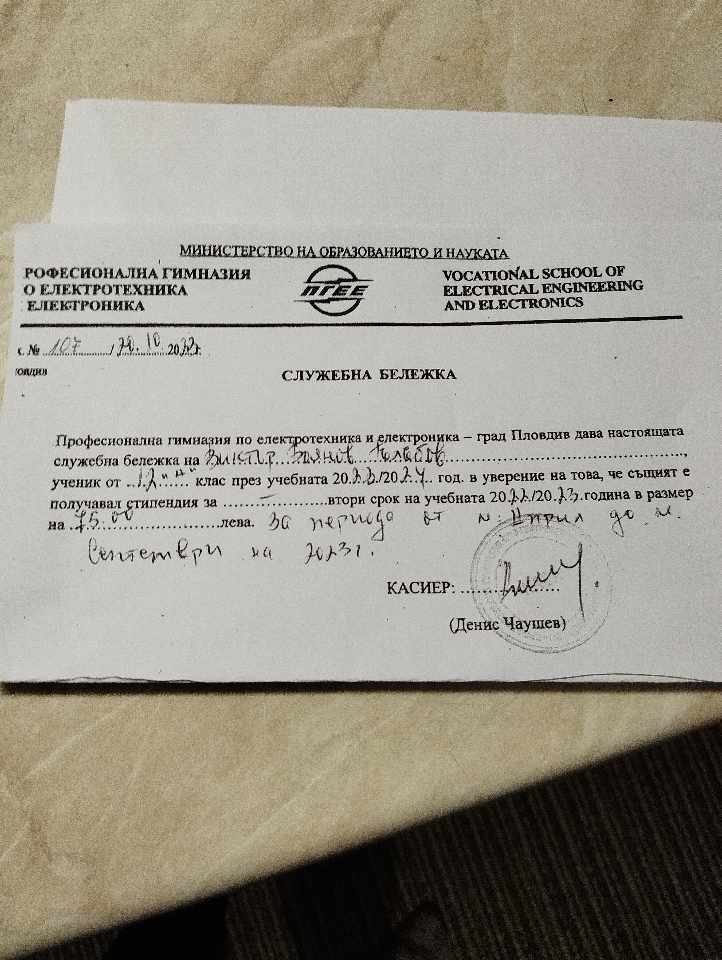 МИНИСТЕРСТВО НА ОБРАЗОВАНИЕТО И НАУКАТА
РОФЕСИОНАЛНА ГИМНАЗИЯ
О ЕЛЕКТРОТЕХНИКА
ЕЛЕКТРОНИКА
ПГЕЕ
VOCATIONAL SCHOOL OF
ELECTRICAL ENGINEERING
AND ELECTRONICS
х. № 107 / 20.10 2023г.
ОВДИВ
СЛУЖЕБНА БЕЛЕЖКА
Професионална гимназия по електротехника и електроника – град Пловдив дава настоящата
служебна бележка на Виктор Боянов
ученик от 12 клас през учебната 2023/2024 год. в уверение на това, че същият е
получавал стипендия за – втори срок на учебната 2022/2023 година в размер
на 75.00 лева. За периода от м. Април до м.
Септември на 2023г.
КАСИЕР:
(Денис Чаушев)